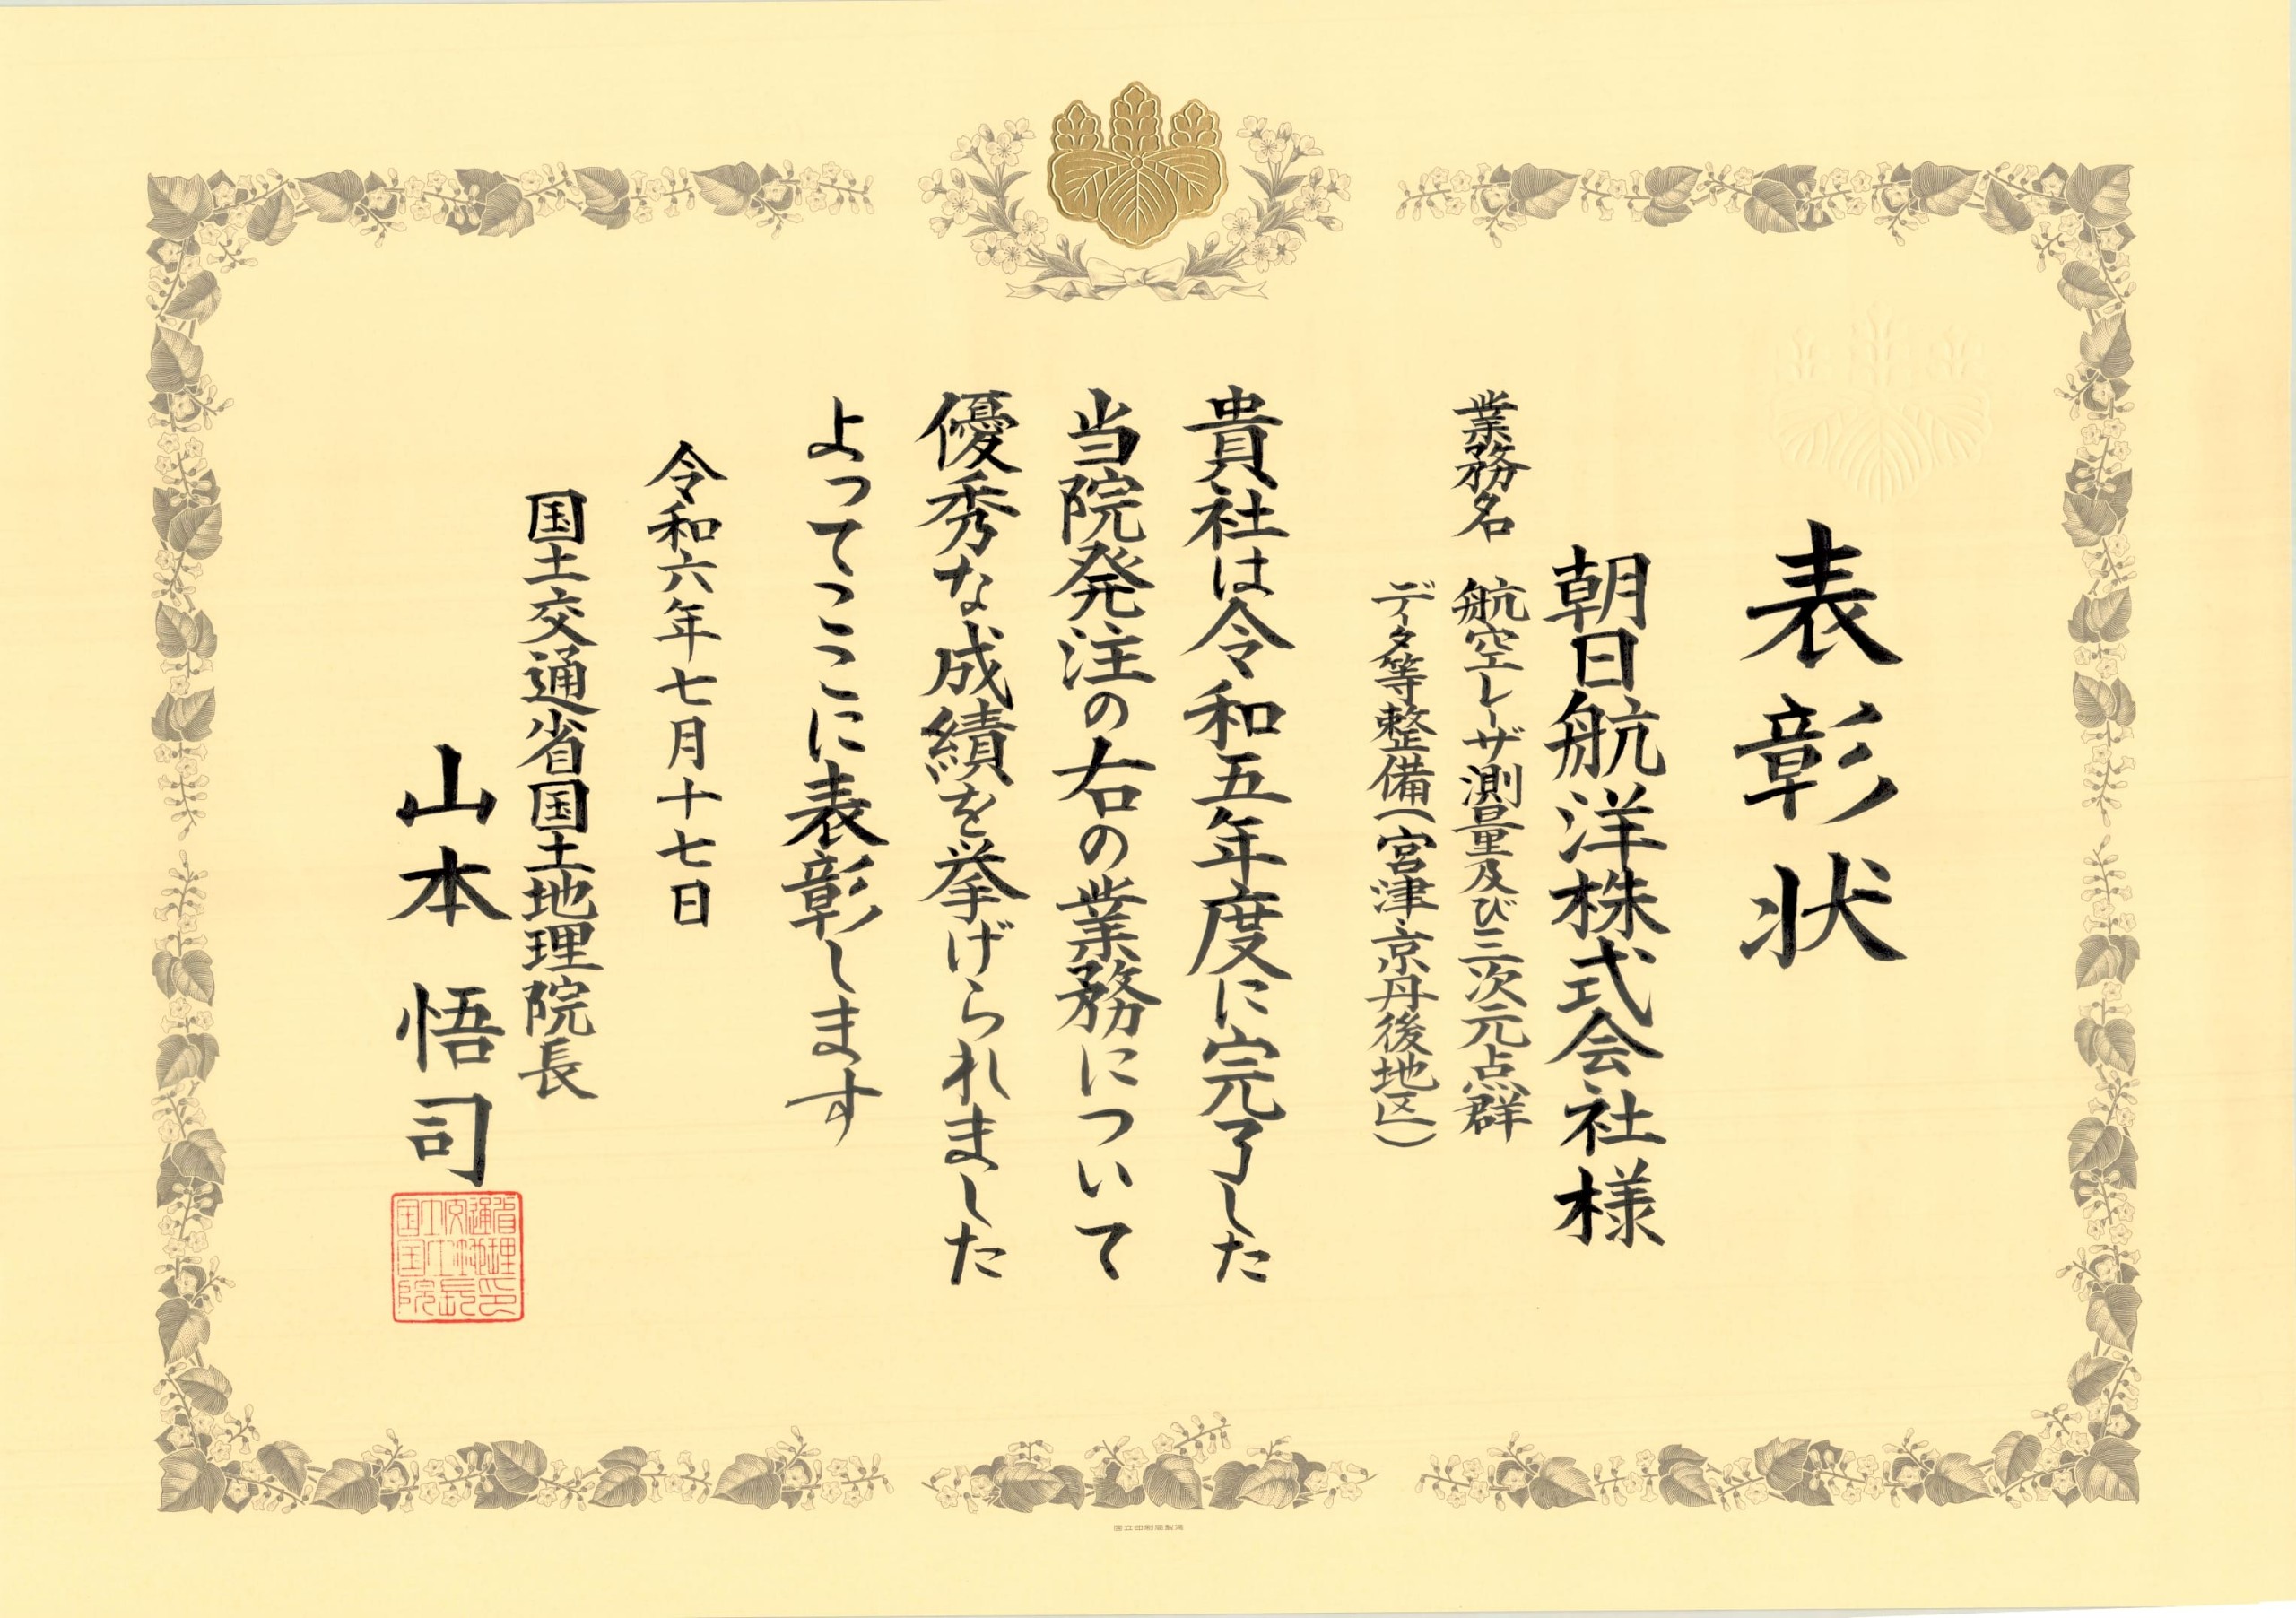 表彰状
朝日航洋株式会社様
業務名 航空レーザ測量及び三次元点群
データ等整備(宮津・京丹後地区)
貴社は令和五年度に完了した
当院発注の右の業務について
優秀な成績を挙げられました
よってここに表彰します
令和六年七月十七日
国土交通省国土地理院長
山本悟司
国土交通省
国土地理
院長印
国立印刷局製造